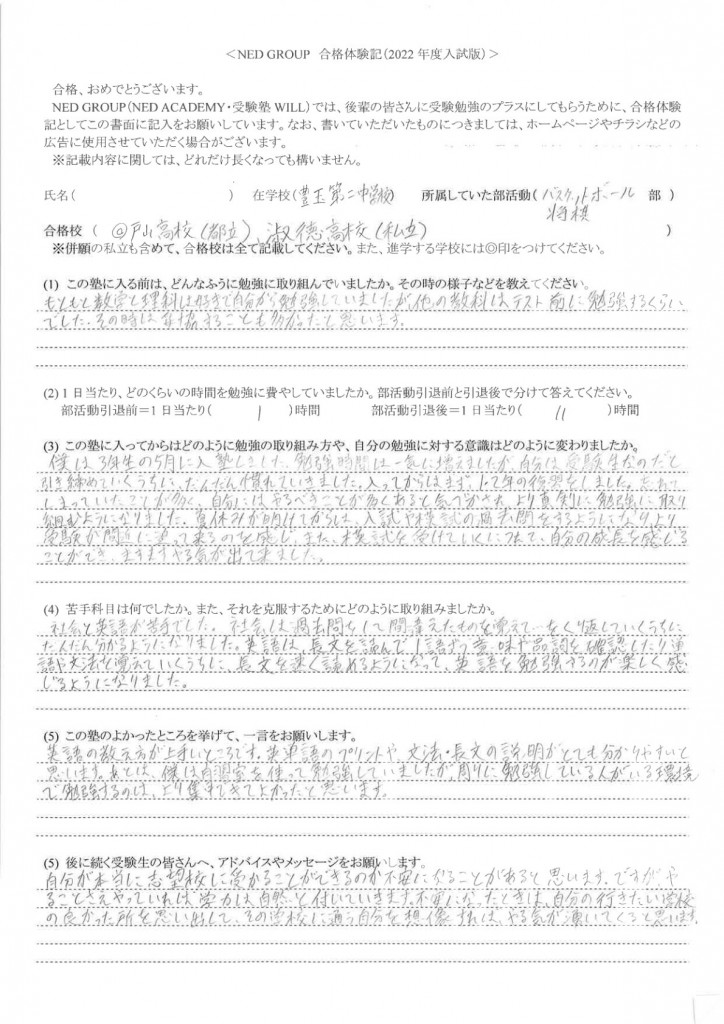 ＜NED GROUP 合格体験記（2022 年度入試版）＞
合格、おめでとうございます。
NED GROUP（NED ACADEMY・受験塾 WILL）では、後輩の皆さんに受験勉強のプラスにしてもらうために、合格体験
記としてこの書面に記入をお願いしています。なお、書いていただいたものにつきましては、ホームページやチラシなどの
広告に使用させていただく場合がございます。
※記載内容に関しては、どれだけ長くなっても構いません。
氏名（ ） 在学校（豊玉第二中学校） 所属していた部活動（バスケットボール 部 ）
将棋
合格校 （ ◎戸山高校（都立）、淑徳高校（私立） ）
※併願の私立も含めて、合格校は全て記載してください。また、進学する学校には◎印をつけてください。
(1) この塾に入る前は、どんなふうに勉強に取り組んでいましたか。その時の様子などを教えてください。
もともと数学と理科は好きで自分から勉強していましたが、他の教科はテスト前に勉強するくらい
でした。その時は妥協することも多かったと思います。
(2) 1 日当たり、どのくらいの時間を勉強に費やしていましたか。部活動引退前と引退後で分けて答えてください。
部活動引退前＝1 日当たり（ 1 ）時間 部活動引退後＝1 日当たり（ 11 ）時間
(3) この塾に入ってからはどのように勉強の取り組み方や、自分の勉強に対する意識はどのように変わりましたか。
僕は3年生の5月に入塾しました。勉強時間は一気に増えましたが、自分は受験生なのだと
引き締めていくうちに、だんだん慣れていきました。入ってからはまず、1、2年の復習をしました。忘れて
しまっていたことが多く、自分にはやるべきことが多くあると気づかされ、より真剣に勉強に取り
組むようになりました。夏休みが明けてからは、入試や模試の過去問をするようになり、より
受験が間近に迫って来るのを感じ、また、模試を受けていくにつれて、自分の成長を感じる
ことができ、ますますやる気が出て来ました。
(4) 苦手科目は何でしたか。また、それを克服するためにどのように取り組みましたか。
社会と英語が苦手でした。社会は過去問をして間違えたものを覚えて…をくり返していくうちに
だんだん分かるようになりました。英語は、長文を読んで1語ずつ意味や品詞を確認したり、単
語や文法を覚えていくうちに、長文を速く読めるようになって、英語を勉強するのが楽しく感
じるようになりました。
(5) この塾のよかったところを挙げて、一言をお願いします。
英語の教え方が上手いところです。英単語のプリントや、文法・長文の説明がとても分かりやすいと
思います。あとは、僕は自習室を使って勉強していましたが、周りに勉強している人がいる環境
で勉強するのは、より集中できてよかったと思います。
(5) 後に続く受験生の皆さんへ、アドバイスやメッセージをお願いします。
自分が本当に志望校に受かることができるのか不安になることがあると思います。ですが、や
ることさえやっていれば、学力は自然と付いていきます。不安になったときは、自分の行きたい学校
の良かった所を思い出して、その学校に通う自分を想像すれば、やる気が湧いてくると思います。